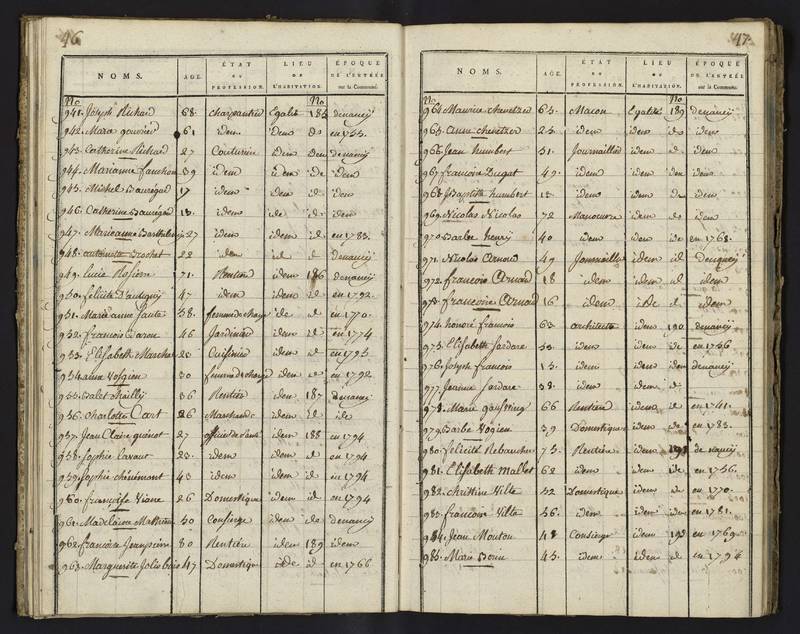 46
NOMS. AGE. ÉTAT OU PROFESSION. LIEU DE L'HABITATION. ÉPOQUE DE L'ENTRÉE sur la Commune.
No No
941. Joseph Richard 68 charpentier Egalité 185 de nancy
942. 61 idem idem do en 1755.
943. Catherine Richard 27 Couturiere idem idem de nancy
944. Marianne 39 idem idem de idem
945. Michel Beauregard 17 idem idem d idem
946. Catherine Beauregard 13. idem id d idem
947. Marieanne Barthelemy 27 idem idem d en 1783.
948. 22 idem id d de nancy
949. Lucie 71. Rentiere idem 186 de nancy
950. felicité 47 idem idem d en 1792.
951. Marieanne 58. femme de charge id d en 1770.
952. francois 46 Jardinier idem d en 1774
953. Elisabeth 20 Cuisiniere idem d en 1793
954. anna Vosgien 30 femme de charge idem d en 1792
955. 36 Rentier idem 187 de nancy
956. Charlotte Cart 26 Marchande idem d id
957. Jean Claire 27 officier de santé idem 188 en 1794
958. Sophie 23. idem idem d en 1794
959. Sophie 43 idem idem d en 1794
960. françoise Viane 26 Domestique idem d en 1794
961. Madelaine Mathieu 50 Concierge idem do de nancy
962. francoise 80 Rentiere idem 189 idem
963. Marguerite Jolibois 47 Domestique idem d en 1766
47
NOMS. AGE. ÉTAT OU PROFESSION. LIEU DE L'HABITATION. ÉPOQUE DE L'ENTRÉE sur la Commune.
No No
964. Maurice 65. Macon Egalité 189 de nancy
965. anne 25. idem idem do idem
966. Jean humbert 51. Journaillier idem d idem
967. francoise Dugat 49. idem idem idem
968. Baptiste humbert 13 idem idem de idem
969. Nicolas Nicolas 72 Manoeuvre idem do idem
970. Barbe henry 40 idem idem de en 1768.
971. Nicolas Arnoud 49 Journaillier idem d de nancy
972. francois Arnoud 18 idem idem d idem
973. francoise Arnoud 16 idem id d idem
974. honoré francois 63 architecte idem 190 de nancy
975. Elisabeth 53. idem idem de en 1756
976. Joseph francois 15. idem idem idem de nancy
977. Jeanne 38. idem idem d
978. Marie 66 Rentiere idem d en 1741.
979. Barbe Vogien 39 Domestique idem do en 1783.
980. felicité 75. Rentiere idem 191 de nancy
981. Elisabeth Mallet 62 idem idem de en 1756.
982. christine Vilte 52 Domestique idem do en 1770.
983. francoise Vilte 56. idem idem d en 1781.
984. Jean Mouton 48 Concierge idem 193 en 1769
985. Marie 45. idem idem d en 1794